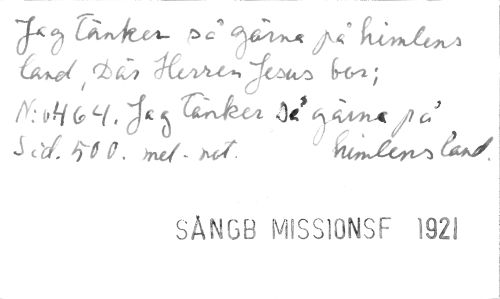 Jag tänker så gärna på himlens
land, Där Herren Jesus bor;
N:o 464. Jag tänker så gärna på
Sid. 500. mel. not. himlens land.
SÅNGB MISSIONSF 1921